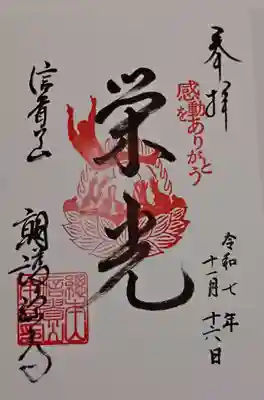 奉拝
令和七年
十一月十六日
感動を
ありがとう
栄光
信貴山
朝護孫子寺